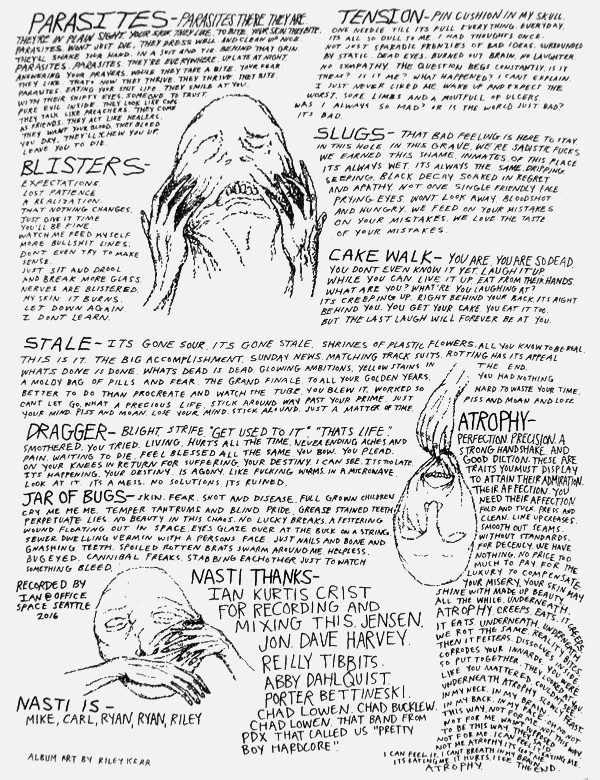 PARASITES- PARASITES THERE THEY ARE
THEY'RE IN PLAIN SIGHT. YOUR SKIN THEY LIKE. TO BITE. YOUR SKIN THEY BITE.
PARASITES. WON'T JUST DIE. THEY DRESS WELL AND CLEAN UP NICE.
THEY'LL SHAKE YOUR HAND. IN A SUIT AND TIE BEHIND THAT GRIN.
PARASITES. PARASITES THEY'RE EVERYWHERE. UP LATE AT NIGHT.
ANSWERING YOUR PRAYERS. WHILE THEY TAKE A BITE. YOUR FEAR
THEY LIKE. THAT'S HOW THEY THRIVE. THEY THRIVE. THEY BITE.
PARASITES. EATING YOUR SHIT LIFE. THEY SMILE AT YOU.
WITH THEIR EMPTY EYES. SOMEONE TO TRUST.
PURE EVIL INSIDE. THEY LOOK LIKE COPS
THEY TALK LIKE PREACHERS. THEY COME
AS FRIENDS. THEY ACT LIKE HEALERS.
THEY WANT YOUR BLOOD. THEY BLEED
YOU DRY. THEY'LL CHEW YOU UP.
LEAVE YOU TO DIE.
BLISTERS-
EXPECTATIONS
LOST PATIENCE
A REALIZATION.
THAT NOTHING CHANGES.
JUST GIVE IT TIME
YOU'LL BE FINE
WATCH ME FEED MYSELF
MORE BULLSHIT LINES.
DON'T EVEN TRY TO MAKE
SENSE.
JUST SIT AND DROOL
AND BREAK MORE GLASS.
NERVES ARE BLISTERED.
MY SKIN IT BURNS.
LET DOWN AGAIN.
I DON'T LEARN.
TENSION- PIN CUSHION IN MY SKULL.
ONE NEEDLE TILL IT'S FULL. EVERYTHING. EVERYDAY.
IT'S ALL SO DULL TO ME. I HAD THOUGHTS ONCE.
NOT JUST SPORADIC FRENZIES OF BAD IDEAS. SURROUNDED
BY STATIC. DEAD EYES. BURNED OUT BRAIN. NO LAUGHTER.
NO SYMPATHY. THE QUESTION BEGS CONSTANTLY. IS IT
THEM? IS IT ME? WHAT HAPPENED? I CAN'T EXPLAIN.
I JUST NEVER LIKED ME. WAKE UP AND EXPECT THE
WORST. SORE LIMBS AND A MOUTHFULL OF ULCERS.
WAS I ALWAYS SO MAD? OR IS THE WORLD JUST BAD?
IT'S BAD.
SLUGS- THAT BAD FEELING IS HERE TO STAY
IN THIS HOLE. IN THIS GRAVE. WE'RE SADISTIC FUCKS
WE EARNED THIS SHAME. INMATES OF THIS PLACE
IT'S ALWAYS WET. IT'S ALWAYS THE SAME. DRIPPING
SEEPING. BLACK DECAY SOAKED IN REGRET
AND APATHY. NOT ONE SINGLE FRIENDLY FACE.
PRYING EYES. WON'T LOOK AWAY. BLOODSHOT
AND HUNGRY. WE FEED ON YOUR MISTAKES
ON YOUR MISTAKES. WE LOVE THE TASTE
OF YOUR MISTAKES.
CAKE WALK- YOU ARE. YOU ARE SO DEAD.
YOU DON'T EVEN KNOW IT YET. LAUGH IT UP
WHILE YOU CAN LIVE IT UP. EAT FROM THEIR HANDS.
WHAT ARE YOU? WHAT'RE YOU LAUGHING AT?
IT'S CREEPING UP. RIGHT BEHIND YOUR BACK. IT'S RIGHT
BEHIND YOU. YOU GET YOUR CAKE. YOU EAT IT TOO.
BUT THE LAST LAUGH WILL FOREVER BE AT YOU.
STALE- IT'S GONE SOUR. IT'S GONE STALE. SHRINES OF PLASTIC FLOWERS. ALL YOU KNOW TO BE REAL.
THIS IS IT. THE BIG ACCOMPLISHMENT. SUNDAY NEWS. MATCHING TRACK SUITS. ROTTING HAS ITS APPEAL
WHAT'S DONE IS DONE. WHAT'S DEAD IS DEAD. GLOWING AMBITIONS. YELLOW STAINS IN
A MOLDY BAG OF PILLS AND FEAR. THE GRAND FINALE. TO ALL YOUR GOLDEN YEARS.
BETTER TO DO THAN PROCREATE AND WATCH THE TUBE. YOU BLEW IT. WORKED SO
CAN'T LET GO. WHAT A PRECIOUS LIFE. STICK AROUND WAY PAST YOUR PRIME. JUST
YOUR MIND. PISS AND MOAN. LOSE YOUR MIND. STICK AROUND. JUST A MATTER OF TIME.
THE END.
YOU HAD NOTHING
HARD TO WASTE YOUR TIME.
PISS AND MOAN AND LOSE.
DRAGGER- BLIGHT. STRIFE. "GET USED TO IT." "THAT'S LIFE."
SMOTHERED. YOU TRIED. LIVING. HURTS ALL THE TIME. NEVER ENDING ACHES AND
PAIN. WAITING TO DIE. FEEL BLESSED ALL THE SAME YOU BOW. YOU PLEAD.
ON YOUR KNEES IN RETURN FOR SUFFERING. YOUR DESTINY. I CAN SEE. IT'S TOO LATE
IT'S HAPPENING. YOUR DESTINY. IS AGONY. LIKE FUCKING WORMS. IN A MICROWAVE
LOOK AT IT. IT'S A MESS. NO SOLUTIONS. IT'S RUINED.
JAR OF BUGS- SKIN. FEAR. SNOT AND DISEASE. FULL GROWN CHILDREN
CRY ME ME ME. TEMPER TANTRUMS AND BLIND PRIDE. GREASE STAINED TEETH
PERPETUATE LIES. NO BEAUTY IN THIS CHAOS. NO LUCKY BREAKS. A FESTERING
WOUND FLOATING OUT IN SPACE. EYES GLAZE OVER AT THE BUCK ON A STRING.
SEWER DWELLING VERMIN WITH A PERSONS FACE. JUST NAILS AND BONE AND
GNASHING TEETH. SPOILED ROTTEN BRATS SWARM AROUND ME. HELPLESS.
BUG EYED. CANNIBAL FREAKS. STABBING EACHOTHER JUST TO WATCH
SOMETHING BLEED.
ATROPHY-
PERFECTION. PRECISION. A
STRONG HANDSHAKE. AND
GOOD DICTION. THESE ARE
TRAITS YOU MUST DISPLAY
TO ATTAIN THEIR ADMIRATION.
THEIR AFFECTION. YOU
NEED THEIR AFFECTION
FOLD AND TUCK. PRESS AND
CLEAN. LINE UP CREASES.
SMOOTH OUT SEAMS.
WITHOUT STANDARDS.
FOR DECENCY. WE HAVE
NOTHING. NO PRICE TOO
MUCH TO PAY FOR THE
LUXURY TO COMPENSATE
YOUR MISERY. YOUR SKIN MAY
SHINE WITH MADE UP BEAUTY
ALL THE WHILE. UNDERNEATH.
ATROPHY. CREEPS. EATS. IT CREEPS.
IT EATS. UNDERNEATH. UNDERNEATH
WE ROT THE SAME. REALITY BITES.
THEN IT FESTERS. DISSOLVES. IT
CORRODES YOUR INWARDS. YOU WERE
SO PUT TOGETHER. THEY
LIKE YOU MATTERED. COULD
UNDERNEATH ATROPHY
IN MY NECK. IN MY BRAIN. FEAST.
IN MY BACK. IN MY FACE. OH NO. NOT
THIS WAY. NOT FOR ME.
NOT FOR ME. WASN'T SUPPOSED
TO BE THIS WAY. THEY SAID
NOT FOR ME. I CAN FEEL IT.
NOT ME. ATROPHY. IT'S GOT ME. EATING ME.
I CAN FEEL IT. I CAN'T BREATH IN MY BRAIN
IT'S EATING ME. IT HURTS. I SEE THE END.
ATROPHY.
RECORDED BY
IAN @ OFFICE
SPACE SEATTLE
2016
NASTI THANKS-
IAN KURTIS CRIST
FOR RECORDING AND
MIXING THIS. JENSEN.
JON. DAVE HARVEY.
REILLY TIBBITS.
ABBY DAHLQUIST.
PORTER BETTINESKI.
CHAD LOWEN. CHAD BUCKLEW.
CHAD LOWEN. THAT BAND FROM
PDX THAT CALLED US "PRETTY
BOY HARDCORE"
NASTI IS-
MIKE, CARL, RYAN, RYAN, RILEY
ALBUM ART BY RILEY KERR